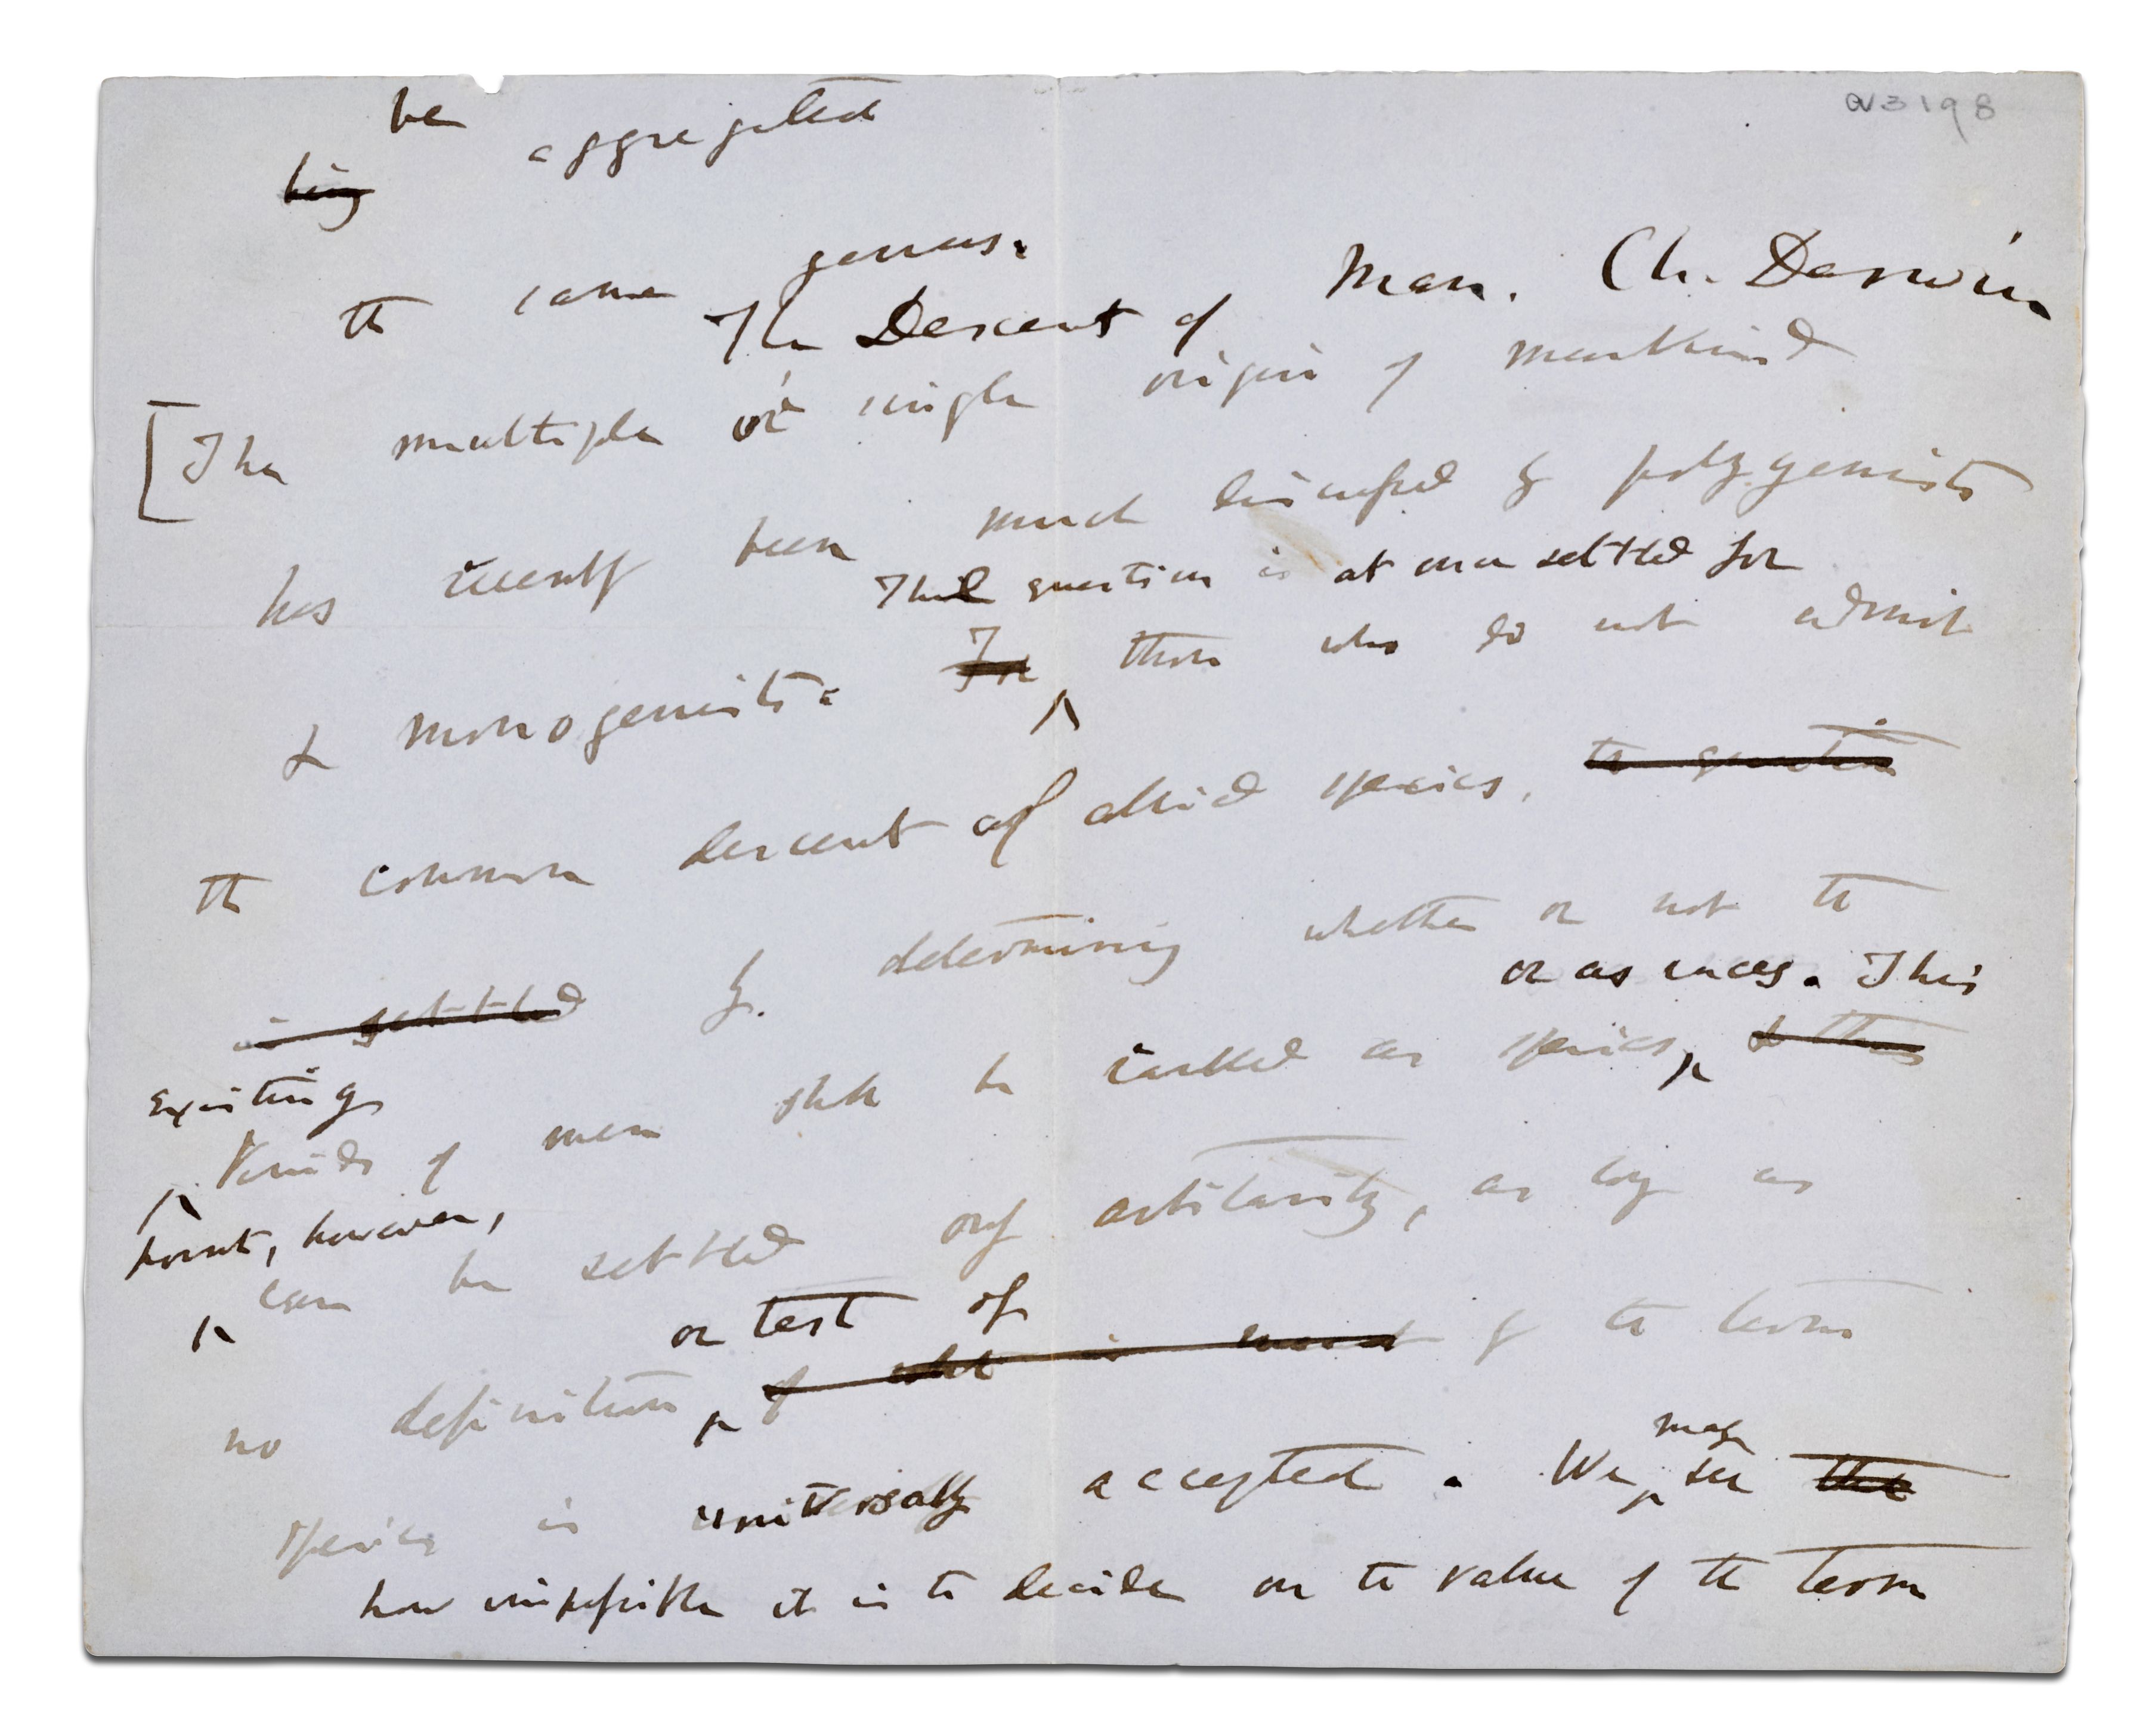 be
being aggregated
the same genus.
The Descent of Man. Ch. Darwin
[The multiple or single origin of mankind
has recently been much discussed by polygenists
This question is at once settled for
& monogenists. For those who do not admit
the common descent of allied species, the question
is settled by determining whether or not the
or as races. This
existing
kinds of men shd be ranked as species, & this
point, however,
can be settled only arbitrarily, as long as
or test of
no definition, of what is meant by the term
may
species is universally accepted. We see that
how impossible it is to decide on the value of the term